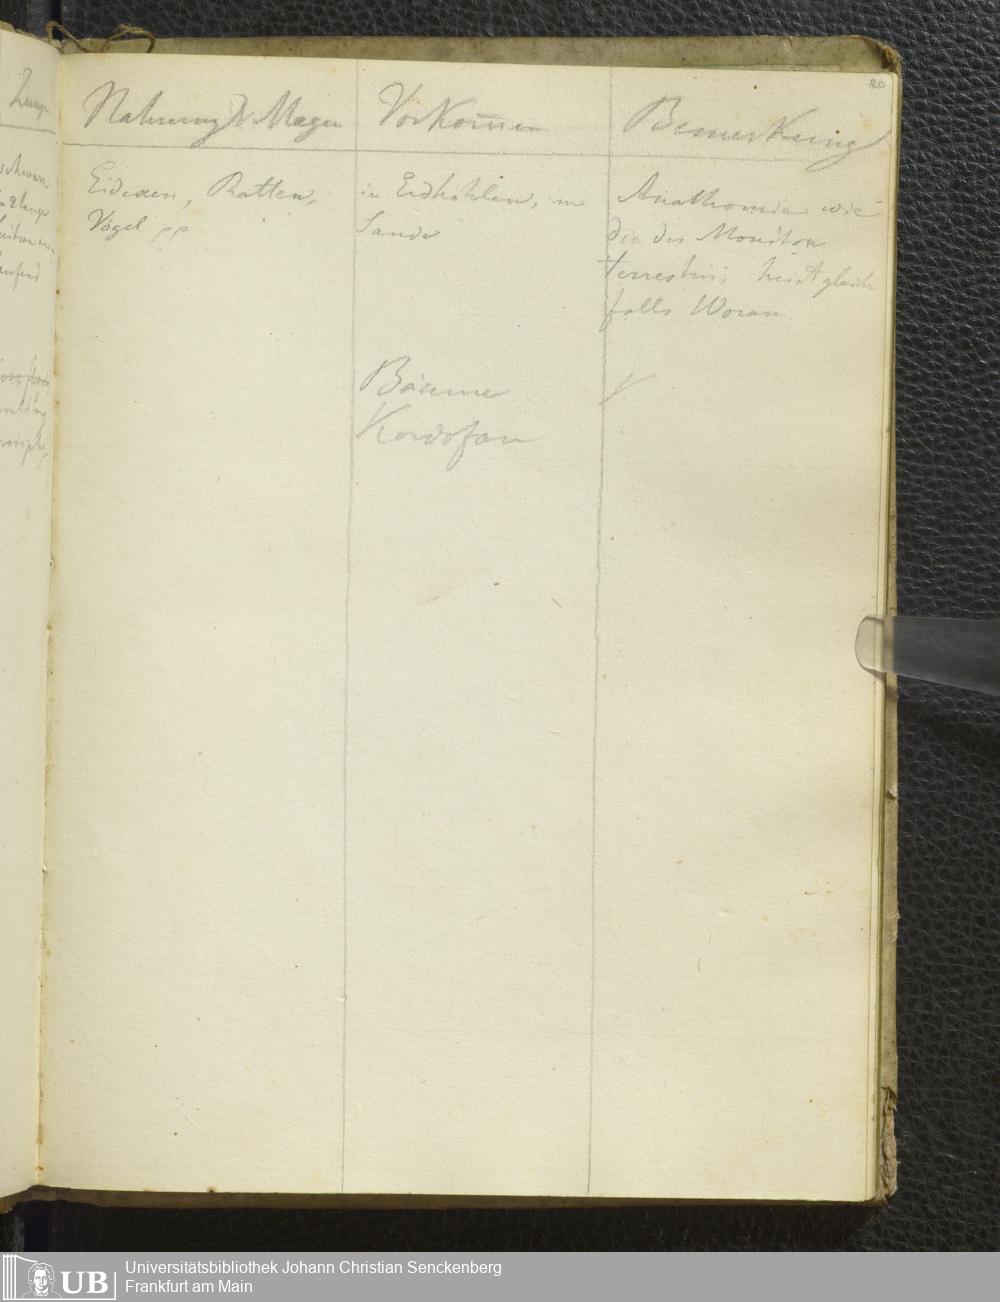 20
Nahrung Magen
Vorkom̅en
Bemerkung
Eidexen, Ratten,
Vögel pp
in Erdhohlen, im
Sande
Anathomie wie
die des Monitor
terrestris, heist gleich
falls Woran
Bäume
Kordofan
Universitätsbibliothek Johann Christian Senckenberg
Frankfurt am Main
UB